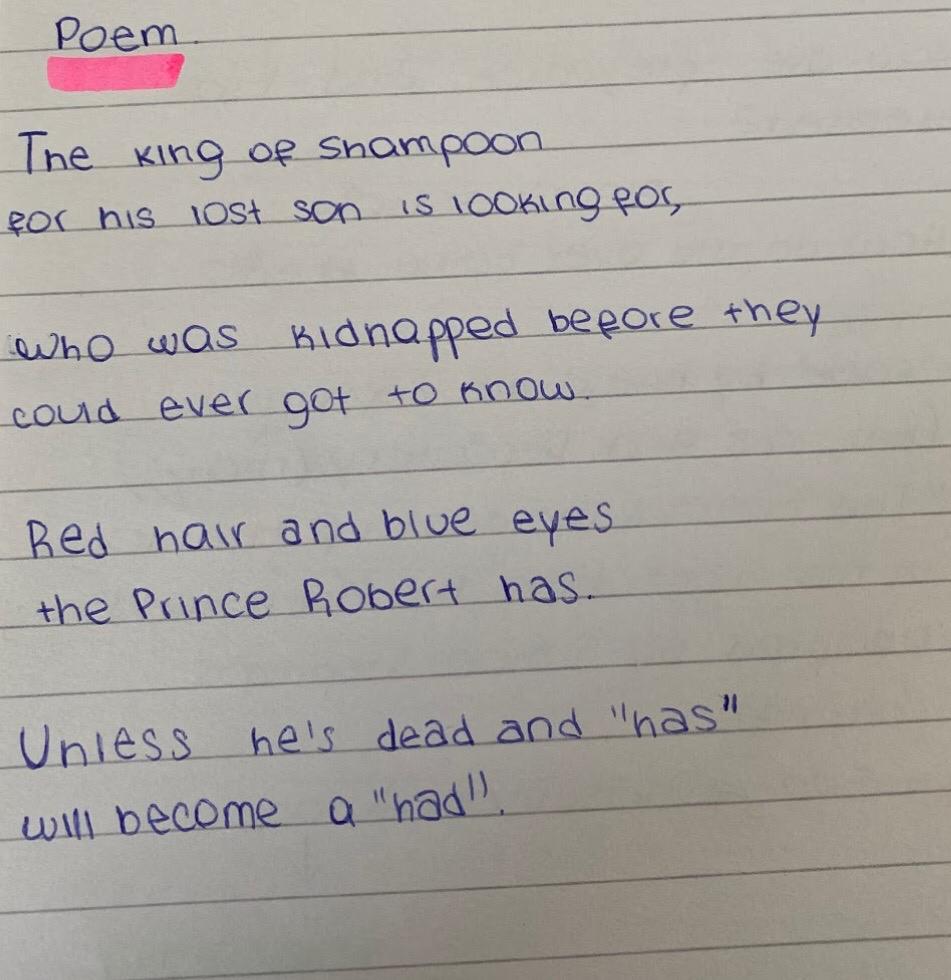 Poem
The King of Shampoon
for his lost son is looking for,
who was kidnapped before they
could ever got to know.
Red hair and blue eyes
the Prince Robert has.
Unless he's dead and "has"
will become a "had".